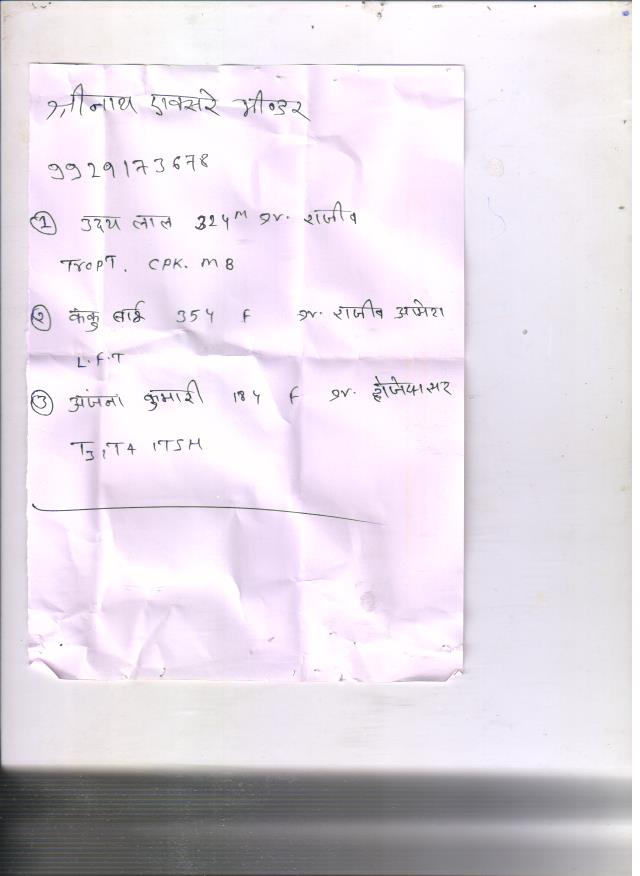 श्रीनाथ एक्सरे भीण्डर
9929173678
① उदय लाल 32y M Dr. राजीव
TropT. CPK. MB
② कंकु बाई 35y F Dr. राजीव आमेटा
L.F.T
③ अंजना कुमारी 18y F Dr.
T3, T4, TSH